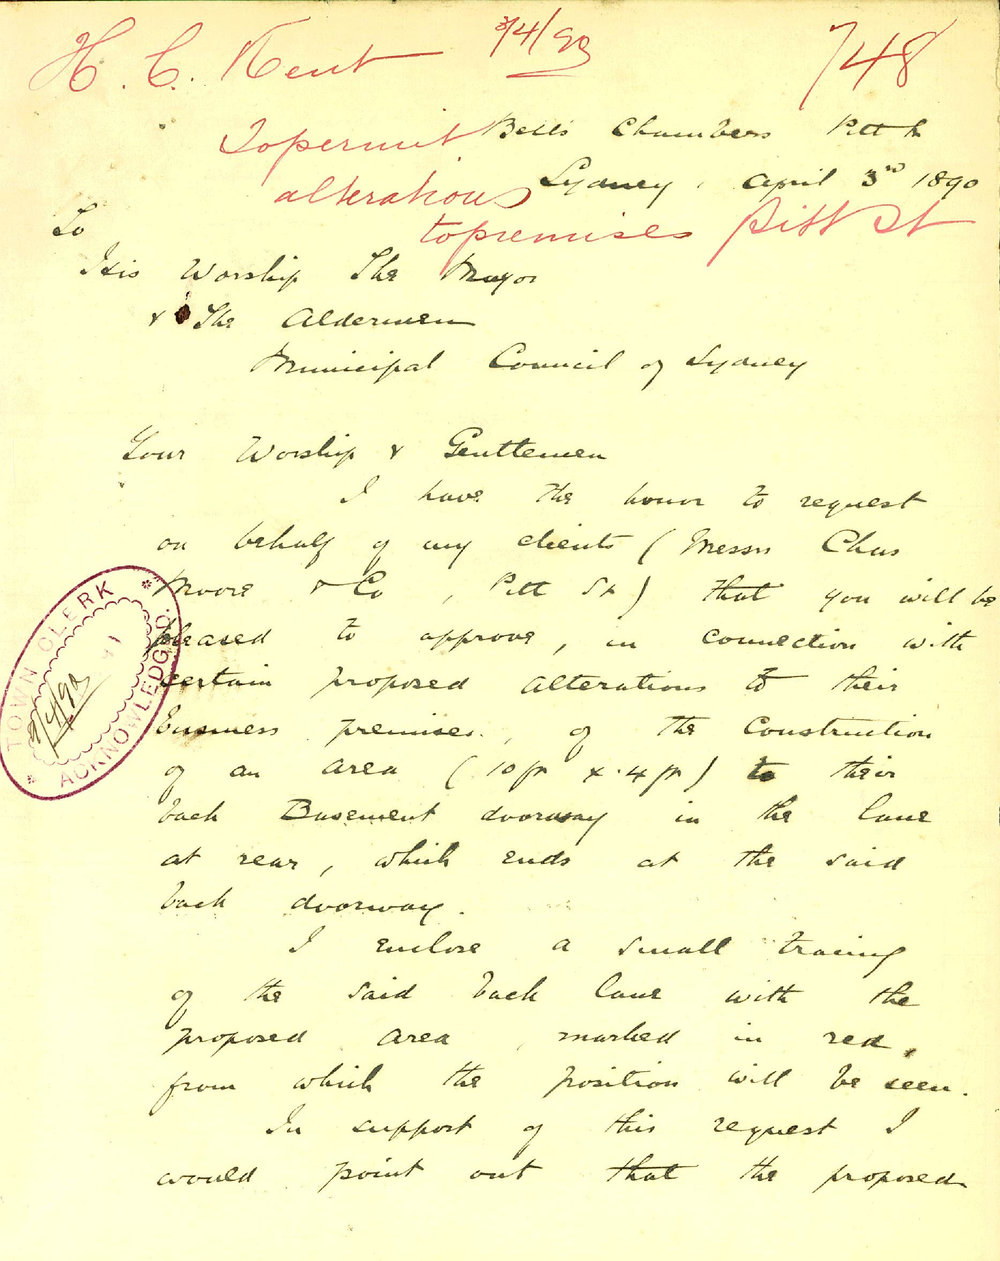 H. C. Kent 3/4/90 748
To permit
alterations
to premises Pitt St
Bell's Chambers Pitt St
Sydney, April 3rd 1890
To
His Worship The Mayor
& The Aldermen
Municipal Council of Sydney
Your Worship & Gentlemen
I have the honor to request
on behalf of my clients (Messrs Chas
Moore & Co, Pitt St) that you will be
pleased to approve, in connection with
certain proposed alterations to their
business premises, of the construction
of an area (10ft x 4ft) to their
back Basement doorway in the lane
at rear, which ends at the said
back doorway.
I enclose a small tracing
of the said back lane with the
proposed area marked in red,
from which the position will be seen.
In support of this request I
would point out that the proposed
TOWN CLERK
ACKNOWLEDGED.